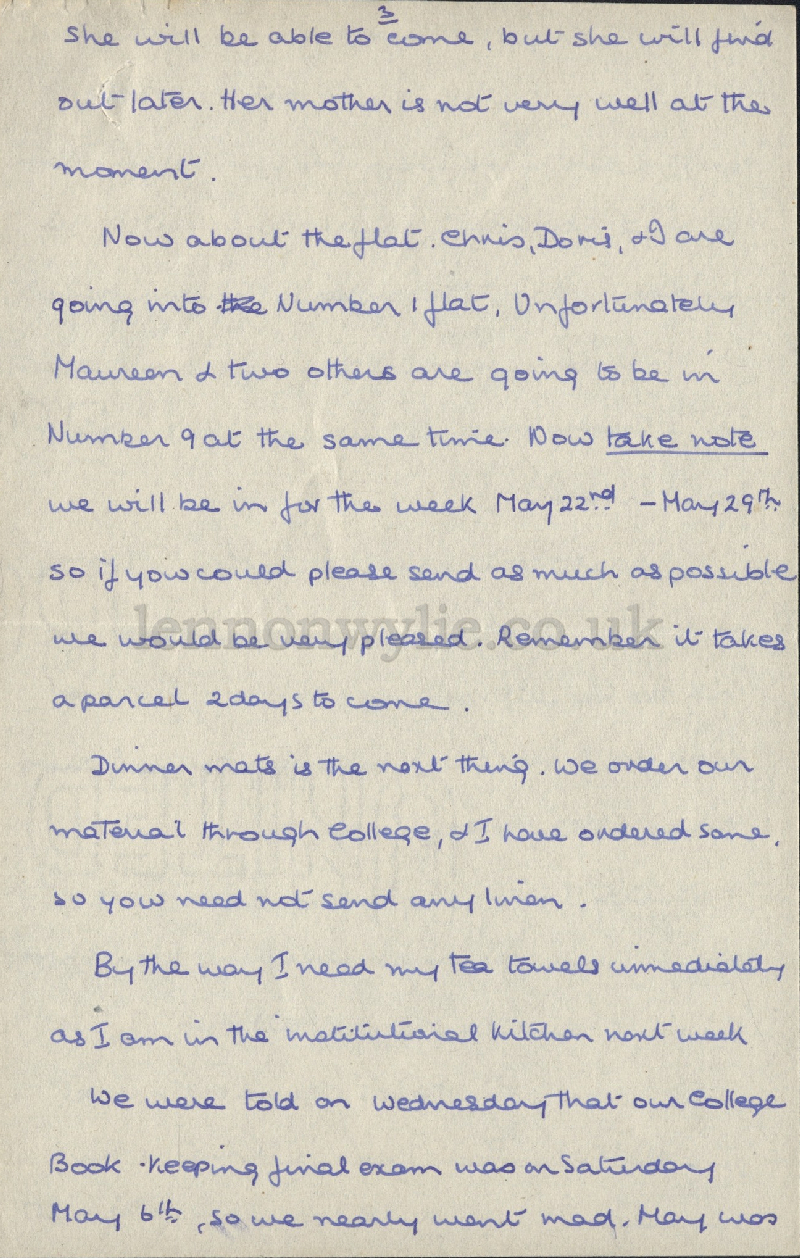 3
she will be able to come, but she will find
out later. Her mother is not very well at the
moment.
Now about the flat. Chris, Doris, & I are
going into the Number 1 flat, Unfortunately
Maureen & two others are going to be in
Number 9 at the same time. Now take note
we will be in for the week May 22nd - May 29th
so if you could please send as much as possible
lennonwylie.co.uk
we would be very pleased. Remember it takes
a parcel 2 days to come.
Dinner mats is the next thing. We order our
material through College, & I have ordered some,
so you need not send any linen.
By the way I need my tea towels immediately
as I am in the institutional kitchen next week
We were told on Wednesday that our College
Book-keeping final exam was on Saturday
May 6th, so we nearly went mad. May was